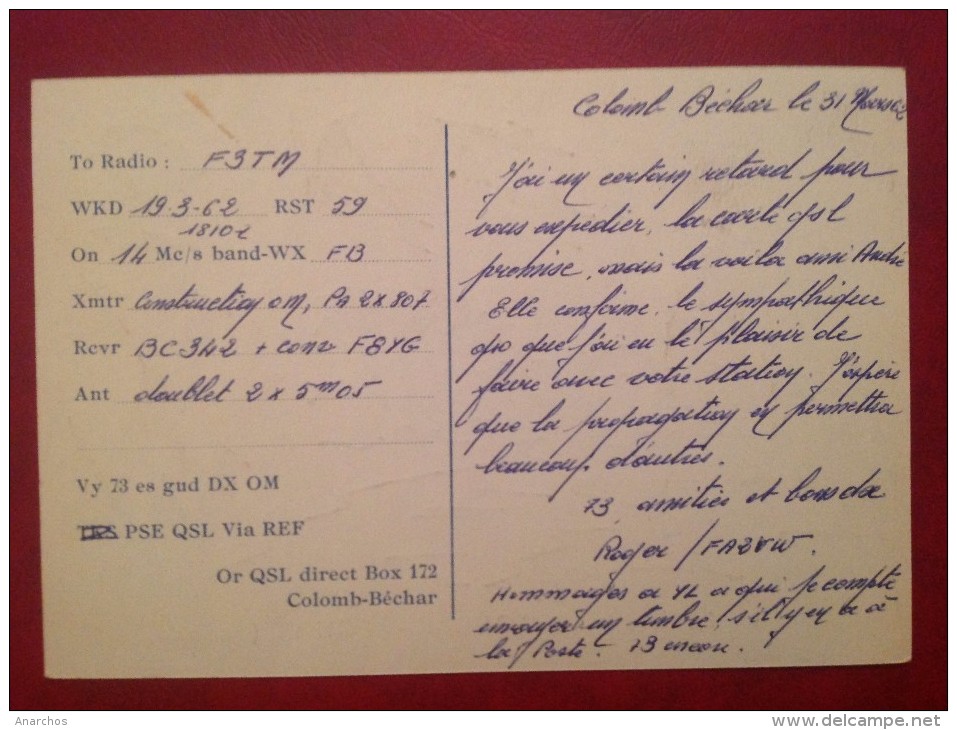 To Radio : F3TM
WKD 19.3-62 RST 59
1810z
On 14 Mc/s band-WX FB
Xmtr Construction OM, PA 2x807
Rcvr BC342 + conv F8YG
Ant doublet 2 x 5m05
Vy 73 es gud DX OM
PSE QSL Via REF
Or QSL direct Box 172
Colomb-Béchar
Colomb Béchar le 31 Mars 62
J'ai un certain retard pour
vous expedier, la carte qsl
promise, mais la voila ami André
Elle confirme le sympathique
qso que j'ai eu le plaisir de
faire avec votre station. J'espère
que la propagation en permettra
beaucoup d'autres.
73 amitiés et bons dx
Roger / FA2VW.
Hommages a YL a qui je compte
envoyer un timbre s'il y en a à
la Poste. 73 encore.
Anarchos
http://www.delcampe.net